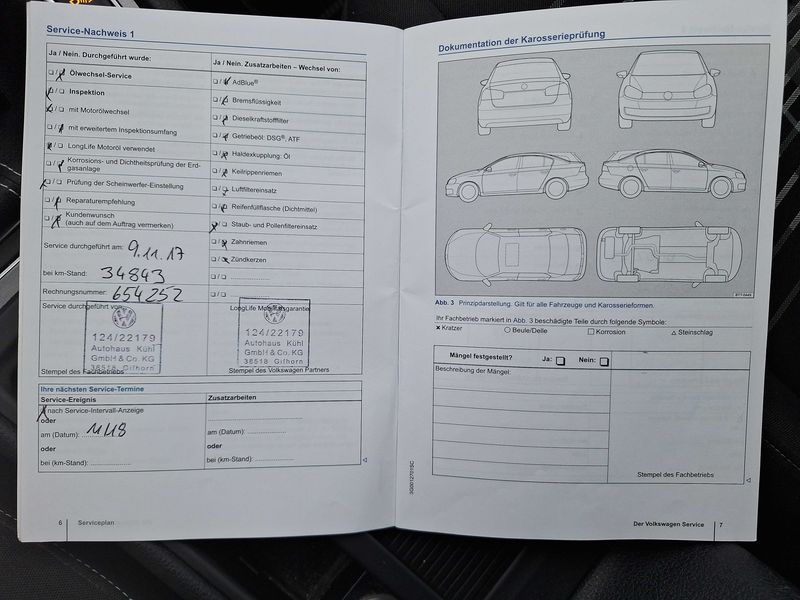 Service-Nachweis 1
Ja / Nein. Durchgeführt wurde:
Ölwechsel-Service
Inspektion
mit Motorölwechsel
mit erweitertem Inspektionsumfang
LongLife Motoröl verwendet
Korrosions- und Dichtheitsprüfung der Erd-
gasanlage
Prüfung der Scheinwerfer-Einstellung
Reparaturempfehlung
Kundenwunsch
(auch auf dem Auftrag vermerken)
Service durchgeführt am: 9.11.17
bei km-Stand: 34843
Rechnungsnummer: 654252
Service durchgeführt von:
124/22179
Autohaus Kühl
GmbH & Co. KG
38518 Gifhorn
Stempel des Fachbetriebs
Ja / Nein. Zusatzarbeiten – Wechsel von:
AdBlue®
Bremsflüssigkeit
Dieselkraftstofffilter
Getriebeöl: DSG®, ATF
Haldexkupplung: Öl
Keilrippenriemen
Luftfiltereinsatz
Reifenfüllflasche (Dichtmittel)
Staub- und Pollenfiltereinsatz
Zahnriemen
Zündkerzen
LongLife Mobilitätsgarantie
124/22179
Autohaus Kühl
GmbH & Co. KG
38518 Gifhorn
Stempel des Volkswagen Partners
Ihre nächsten Service-Termine
Service-Ereignis
nach Service-Intervall-Anzeige
oder
am (Datum): 11/18
oder
bei (km-Stand):
Zusatzarbeiten
am (Datum):
oder
bei (km-Stand):
6 Serviceplan
Dokumentation der Karosserieprüfung
Abb. 3 Prinzipdarstellung. Gilt für alle Fahrzeuge und Karosserieformen.
Ihr Fachbetrieb markiert in Abb. 3 beschädigte Teile durch folgende Symbole:
× Kratzer ○ Beule/Delle □ Korrosion △ Steinschlag
Mängel festgestellt? Ja: □ Nein: □
Beschreibung der Mängel:
Stempel des Fachbetriebs
3G0012701SC
Der Volkswagen Service 7